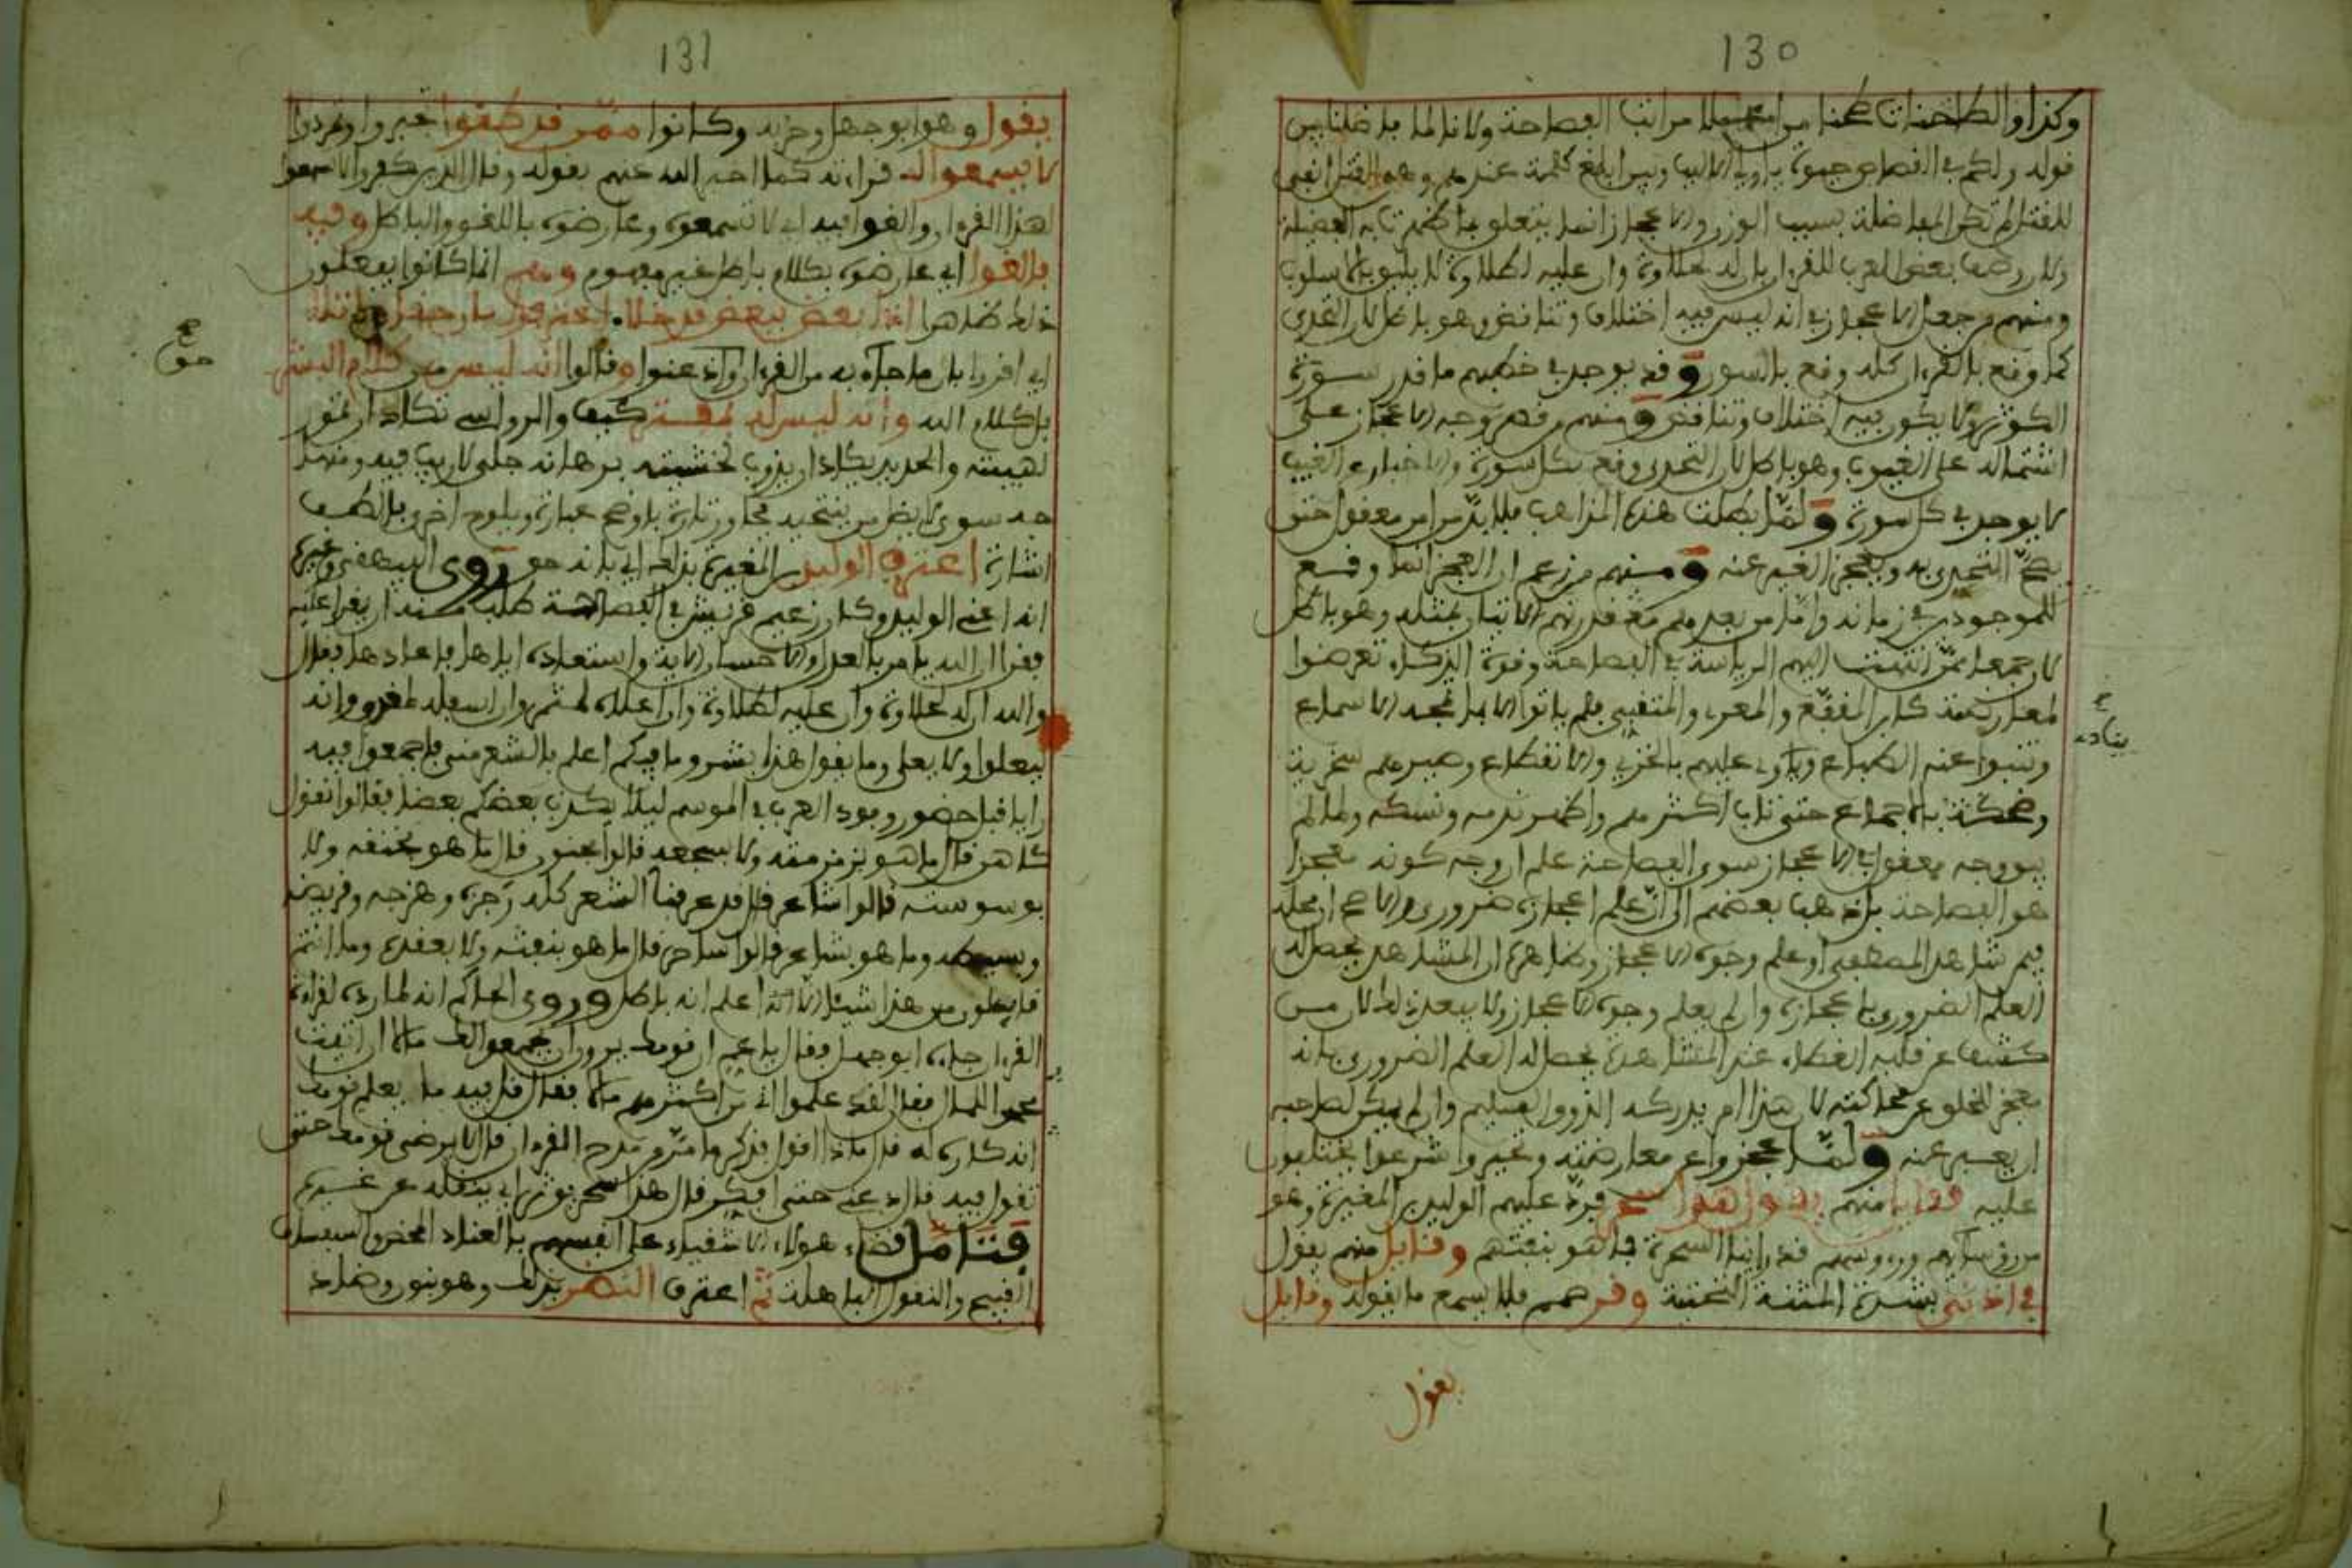 130
وكذا والطاحنات طحنا من مراتب الفصاحة ولا نالما فاضلنا بين
قوله ولكم في القصاص حيوة ياولي الالباب وبين ابلغ كلمة عندهم وهو القتل انفى
للقتل لم تكن المفاضلة بسبب الوزن والاعجاز انما يتعلق بما ظهرت به الفضيلة
وصف بعض العرب للقرءان بان له لحلاوة وان عليه لطلاوة لا يليق بالاسلوب
ومنهم من جعل الاعجاز في انه ليس فيه اختلاف وتناقض وهو باطل لان التحدي
كما وقع بالقرءان كله وقع بالسور وقد يوجد في خطبهم ما قدر سورة
الكوثر ولا يكون فيه اختلاف وتناقض ومنهم من قصر وجه الاعجاز على
اشتماله على الغيوب وهو باطل لان التحدي وقع بكل سورة والاخبار عن الغيب
لا يوجد في كل سورة ولما بطلت هذه المذاهب فلا بد من امر معقول حتى
يصح التحدي به ويعجز الغير عنه ومنهم من زعم ان العجز انما وقع
للموجودين في زمانه واما من بعدهم مع قدرتهم الاتيان بمثله وهو باطل
لان جمعا ممن انتهت اليهم الرياسة في الفصاحة وقوة الذكاء تعرضوا
لمعارضته كابن المقفع والمعري والمتنبي فلم ياتوا الا بما تمجه الاسماع
وتنبوا عنه الطباع ونادى عليهم بالخزي والانقطاع وصيرهم سخرية
وضحكة بالاجماع حتى تاب اكثرهم واظهر ندمه ونسكه ولما لم
يبق وجه معقول في الاعجاز سوى الفصاحة علم ان وجه كونه معجزا
هو الفصاحة بل ذهب بعضهم الى ان علم اعجازه ضروري والاصح ان محله
فيمن شاهد المصطفى او علم وجوه الاعجاز وظاهره ان المشاهد يحصل له
العلم الضروري باعجازه وان لم يعلم وجوه الاعجاز ولا يبعد ذلك لان من
كشف عن قلبه الغطاء عند المشاهدة يحصل له العلم الضروري بانه
معجز للخلق عن محاكته لان هذا امر يدركه الذوق السليم وان لم يمكن لصاحبه
ان يعبر عنه ولما عجزوا عن معارضته وتحيروا شرعوا يختلفون
عليه فقايل منهم يقول هذا سحر فرد عليهم الوليد بن المغيرة وهو
من رؤسائهم ورءوسهم قد راينا السحرة فما هو بنفثهم وقايل منهم يقول
في اذني بشدة المثناة التحتية وقر صمم فلا يسمع ما يقوله وقايل
يقول
بيانه
131
يقول وهو ابو جهل وحزبه وكانوا ممن قد طغوا تجبروا وتمردوا
لا يسمعوا له قراءته كما اخبر الله عنهم بقوله وقال الذين كفروا لا تسمعوا
لهذا القرءان والغوا فيه اي لا تسمعوه وعارضوه باللغو والباطل وفيه
فالغوا اي عارضوه بكلام باطل غير مفهوم وهم انما كانوا يفعلون
ذلك ظاهرا اذا بعض ببعض قد خلا
اي اقروا بان ما جاء به من القرءان واذعنوا وقالوا انه ليس من كلام البشر
بل كلام الله وانه ليس له بمقتدر كيف والرواسي تكاد ان تمور
لهيبته والحديد يكاد ان يذوب لخشيته برهانه جلي لا ريب فيه ومنهاج
جده سوي لا يضل من ينتحيه تحاور تارة باوضح عبارة ويلوح اخرى بالطف
اشارة اعترف الوليد بن المغيرة بذلك اي بانه حق روى البيهقي وغيره
انه اعني الوليد وكان زعيم قريش في الفصاحة طلب منه ان يقرا عليه
فقرا ان الله يامر بالعدل والاحسان الاية واستعاده اياها فاعادها فقال
والله ان له لحلاوة وان عليه لطلاوة وان اعلاه لمثمر وان اسفله لمغدق وانه
ليعلوا ولا يعلى وما يقول هذا بشر وما فيكم اعلم بالشعر مني فاجمعوا فيه
رايا قبل حضور وفود العرب في الموسم ليلا يكذب بعضكم بعضا فقالوا نقول
كاهن قال ما هو بزمزمته ولا سجعه قالوا مجنون قال ما هو بخنقه ولا
بوسوسته قالوا شاعر قال قد عرفنا الشعر كله رجزه وهزجه وقريضه
وبسيطه وما هو بشاعر قالوا ساحر قال ما هو بنفثه ولا بعقده وما انتم
قايلون من هذا شيئا الا انا اعلم انه باطل وروى الحاكم انه لما رق لقراءة
القرءان جاءه ابو جهل فقال يا عم ان قومك يرون ان يجمعوا لك مالا ان اتيت
محمدا للمال فقال لقد علموا اني من اكثرهم مالا فقال قل فيه ما يعلم قومك
انه كاره له قال ماذا اقول فذكر ما مر من مدح القرءان قال لا يرضى قومك حتى
تقول فيه قال دعني حتى افكر قال هذا سحر يوثر اي ينقله عن غيره
فتامل قضاء هولاء الاشقياء على انفسهم بالعناد المحض والسفساف
القبيح والتقول الباطلة ثم اعترف النضر بذلك وهو بنون وضاد
صح
حق